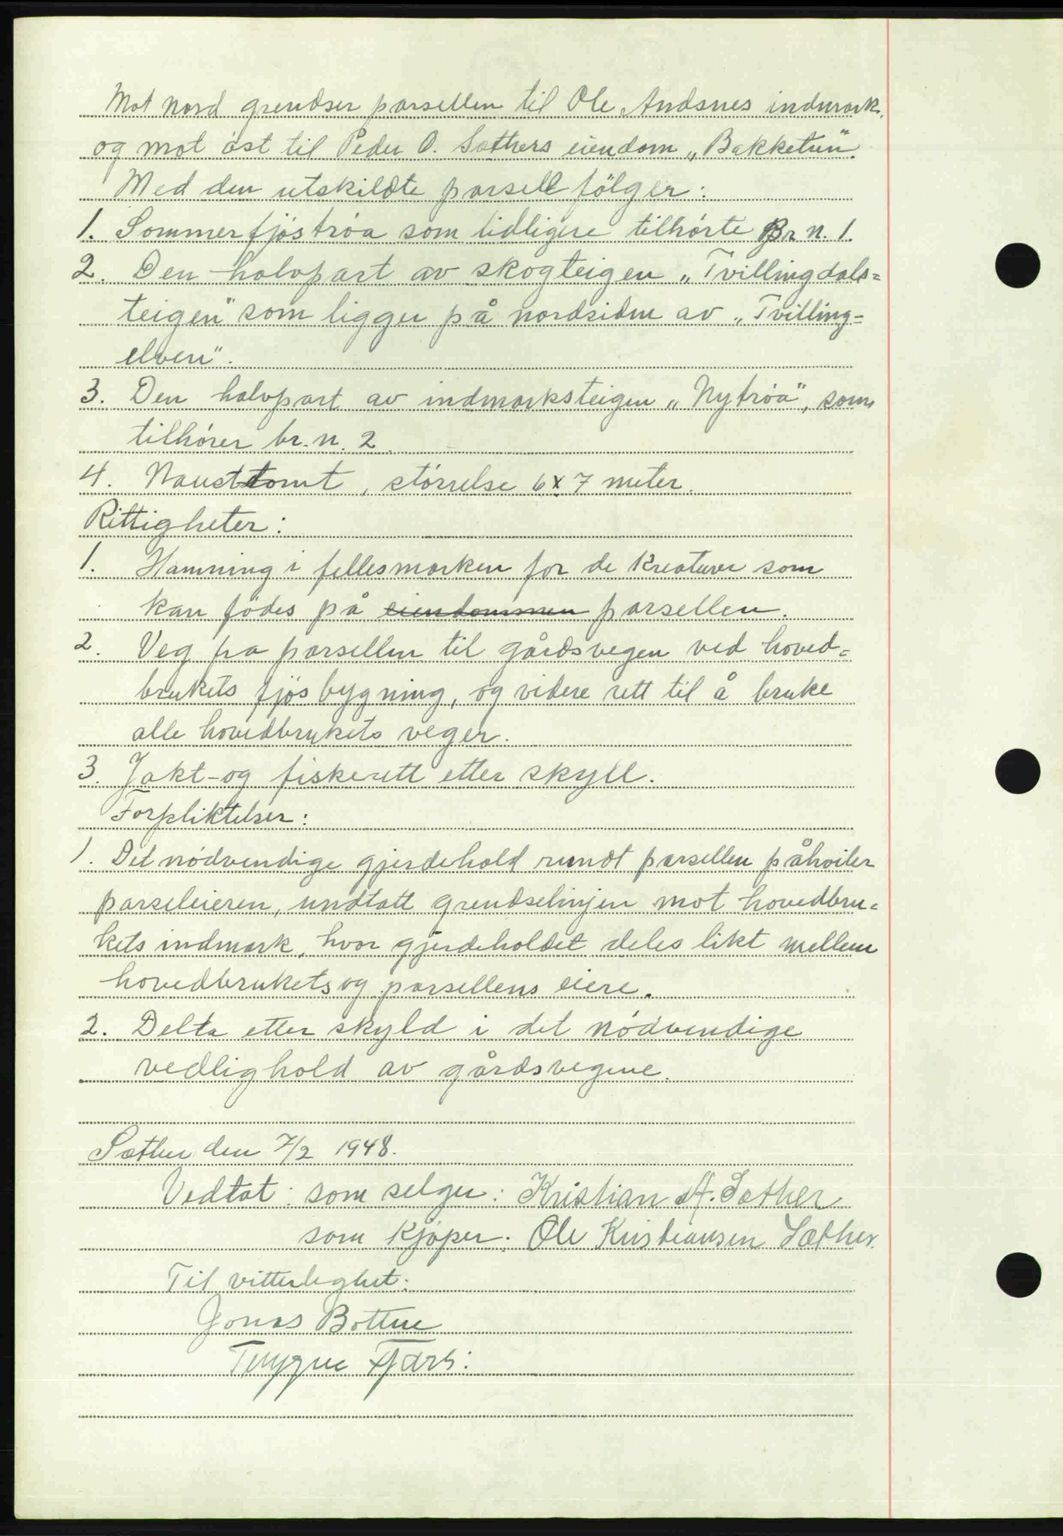 Mot nord grendser parsellen til Ole Andsnes indmark,
og mot øst til Peder O. Sæthers eiendom „Bakketun".
Med den utskildte parsell følger:
1. Sommerfjøstrøa som tidligere tilhørte Br n. 1.
2. Den halvpart av skogteigen „Tvillingdals=
teigen" som ligger på nordsiden av „Tvilling=
elven".
3. Den halvpart av indmarksteigen „Nytrøa", som
tilhører br. n. 2.
4. Nausttomt, størrelse 6 x 7 meter.
Rettigheter:
1. Hamning i fellesmarken for de kreaturer som
kan fødes på eiendommen parsellen.
2. Veg fra parsellen til gårdsvegen ved hoved=
brukets fjøsbygning, og videre rett til å bruke
alle hovedbrukets veger.
3. Jakt- og fiskerett etter skyll.
Forpliktelser:
1. Det nødvendige gjerdehold rundt parsellen påhviler
parseleieren, undtatt grendselinjen mot hovedbru=
kets indmark, hvor gjerdeholdet deles likt mellem
hovedbrukets og parsellens eiere.
2. Delta etter skyld i det nødvendige
vedlighold av gårdsvegene.
Sæther den 7/2 1948.
Vedtat: som selger: Kristian A. Sæther
som kjøper: Ole Kristiansen Sæther.
Til vitterlighet:
Jonas Bottne